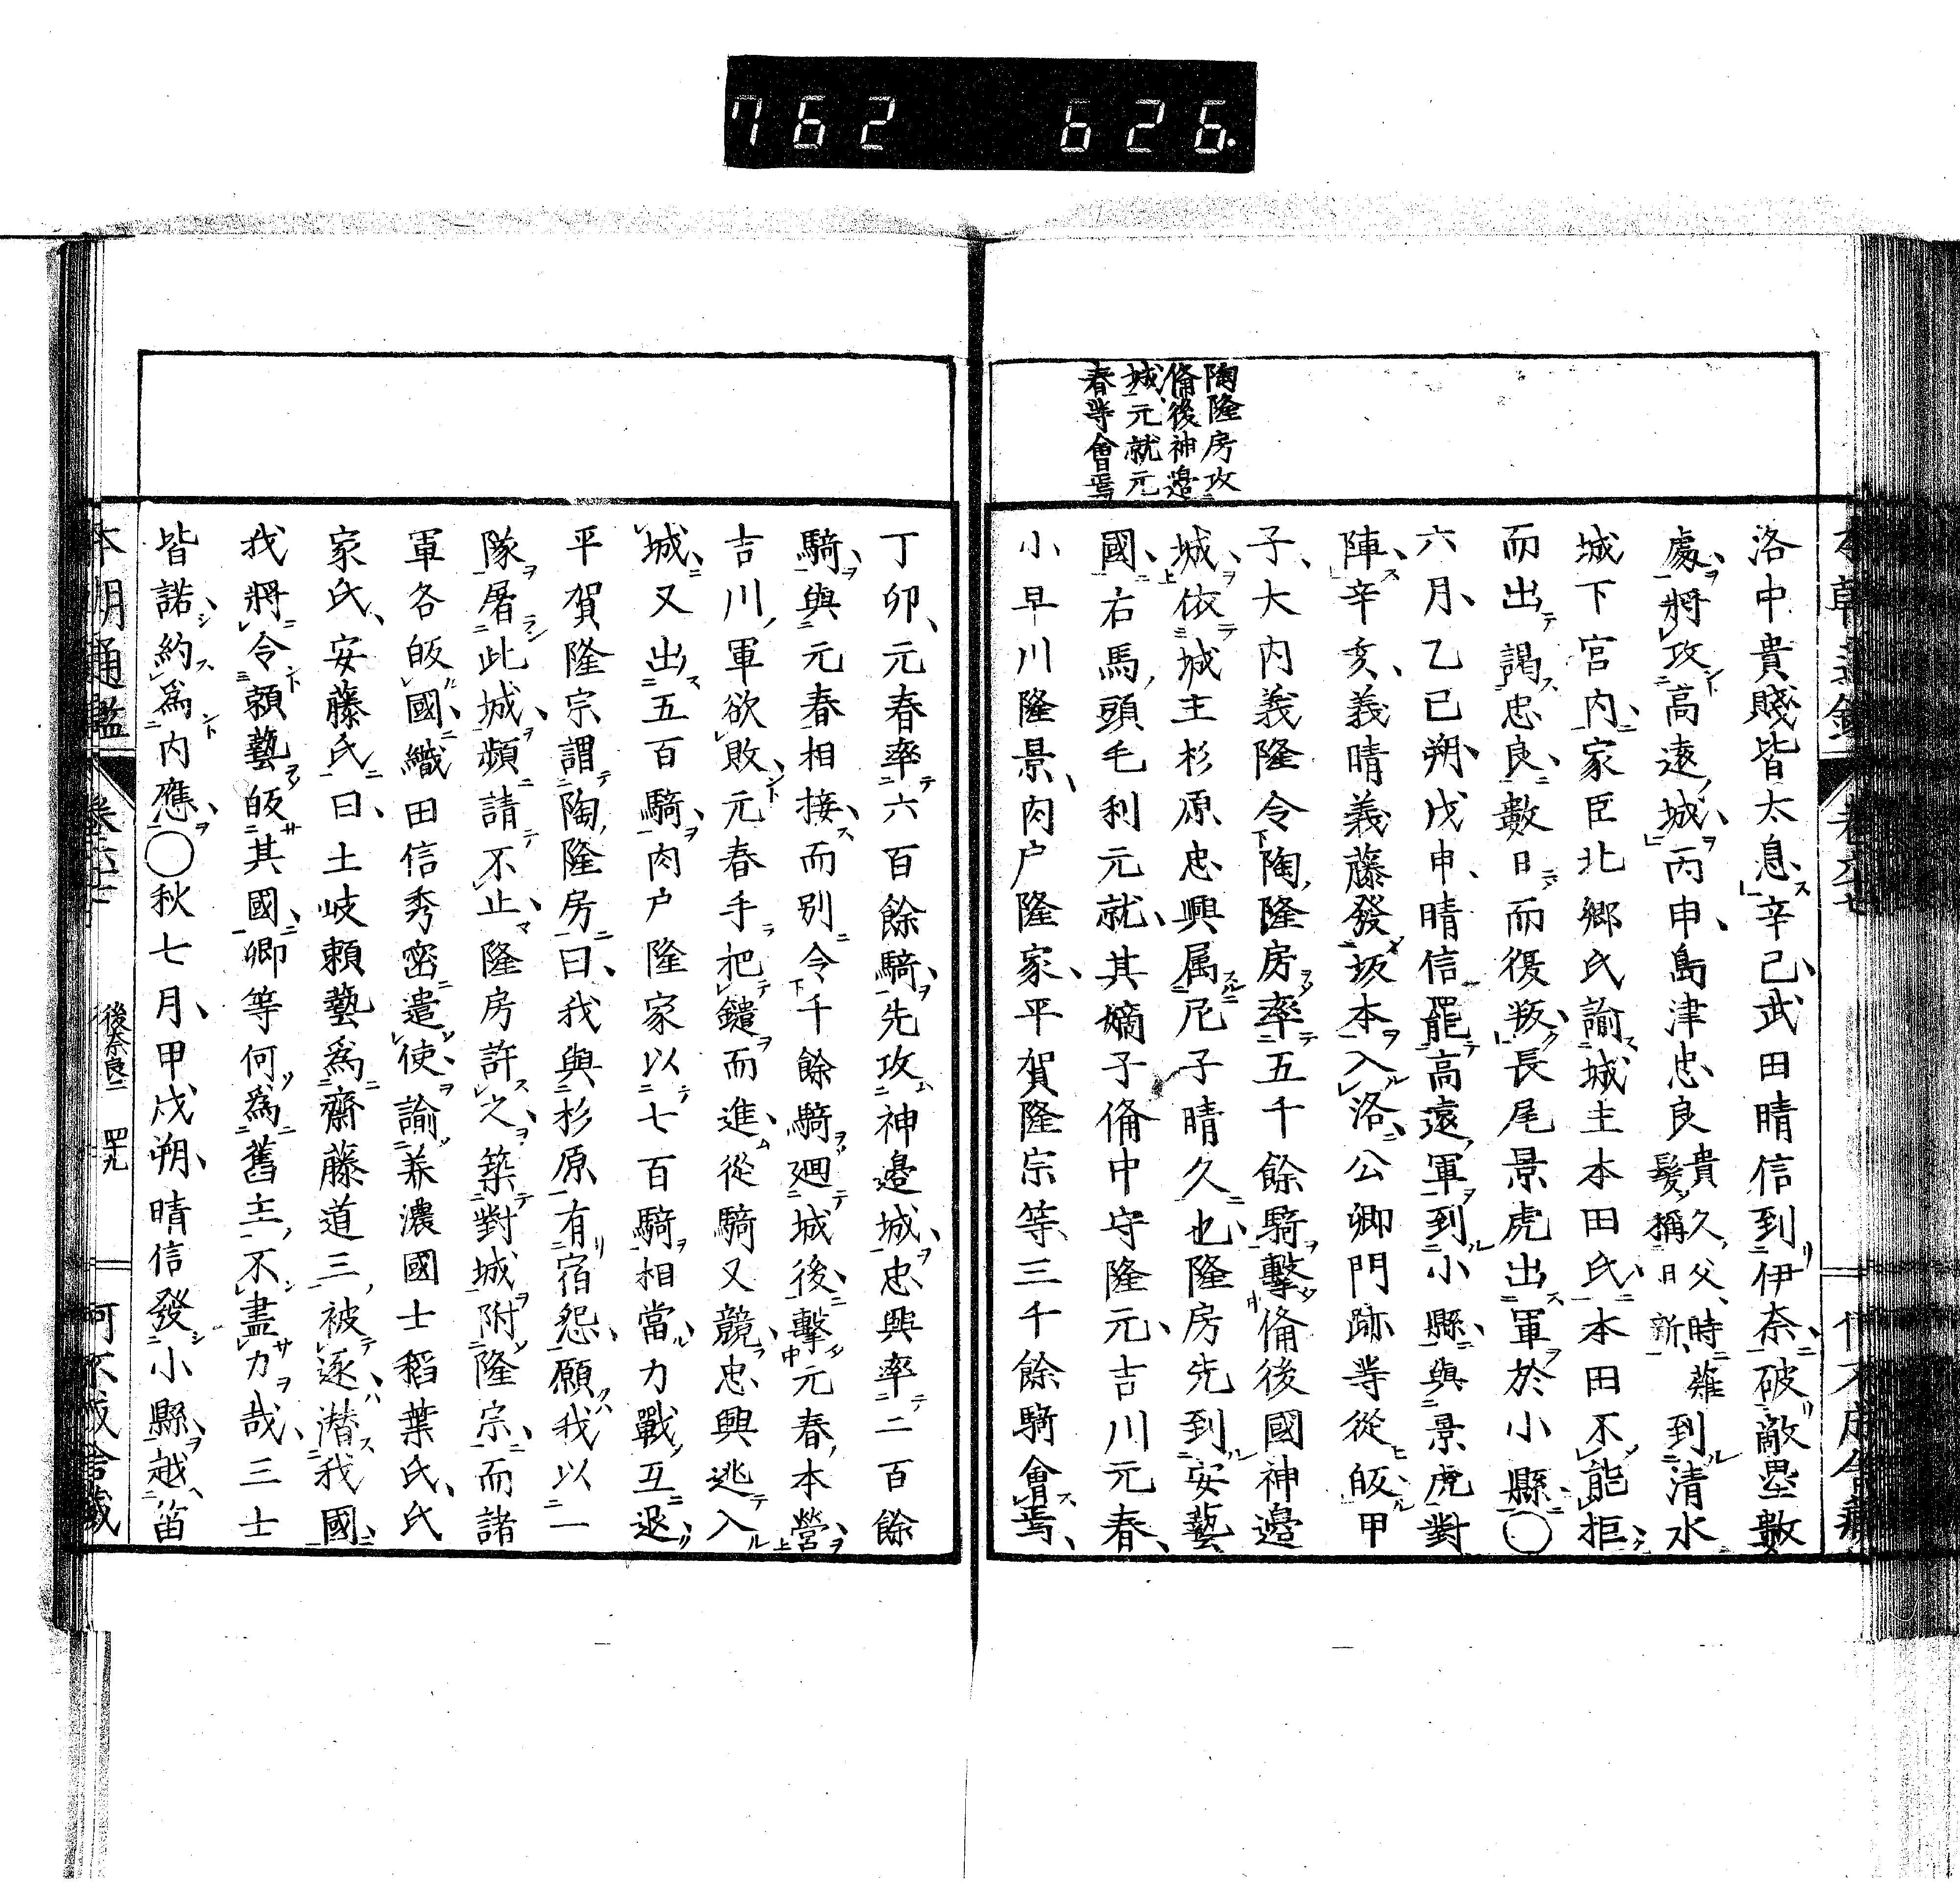 762 626.
陶隆房攻
備後神邉
城元就元
春等會焉
洛中貴賤皆太息辛已武田晴信到伊奈破敵壘數
處將攻高遠城丙申島津忠良貴久父時薙髪稱日新到清水
城下宮内家臣北郷氏諭城主本田氏本田不能拒
而出謁忠良數日而復叛長尾景虎出軍於小縣〇
六月乙已朔戊申晴信罷高遠軍到小縣與景虎對
陣辛亥義晴義藤發坂本入洛公卿門跡等從皈甲
子大内義隆令陶隆房率五千餘騎擊備後國神邉
城依城主杉原忠興属尼子晴久也隆房先到安藝
國右馬頭毛利元就其嫡子備中守隆元吉川元春
小早川隆景肉户隆家平賀隆宗等三千餘騎會焉
丁卯元春率六百餘騎先攻神邉城忠興率二百餘
騎與元春相接而别令千餘騎廻城後擊元春本營
吉川軍欲敗元春手把鑓而進從騎又競忠興逃入
城又出五百騎肉户隆家以七百騎相當力戰互退
平賀隆宗謂陶隆房曰我與杉原有宿怨願我以一
隊屠此城頻請不止隆房許之築對城附隆宗而諸
軍各皈國織田信秀密遣使諭美濃國士稻葉氏氏
家氏安藤氏曰土岐頼藝爲齋藤道三被逐潜我國
我將令頼藝皈其國卿等何爲舊主不盡力哉三士
皆諾約爲内應〇秋七月甲戌朔晴信發小縣越笛
本朝通鑑 後奈良二 四十九